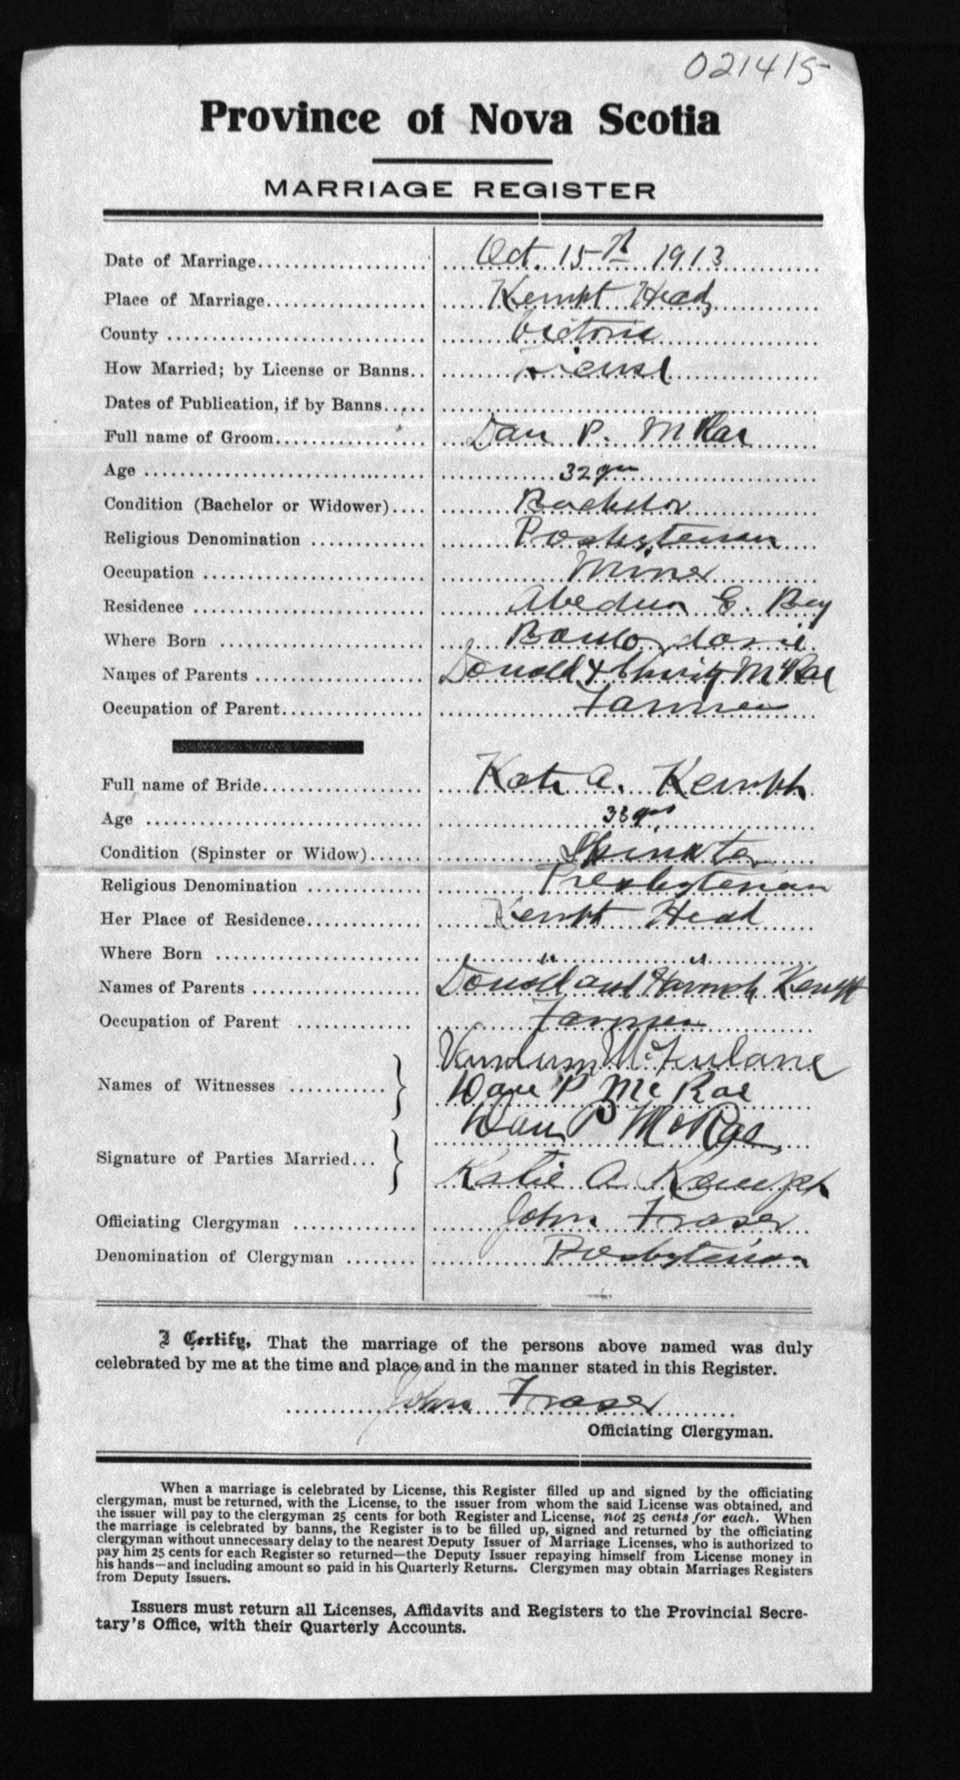 021415
Province of Nova Scotia
MARRIAGE REGISTER
Date of Marriage.................... Oct. 15th 1913
Place of Marriage.................... Kempt Head
County .................... Victoria
How Married; by License or Banns.. License
Dates of Publication, if by Banns.....
Full name of Groom.................... Dan P. McRae
Age .................... 32 yrs
Condition (Bachelor or Widower).... Bachelor
Religious Denomination .................... Presbyterian
Occupation .................... Miner
Residence .................... C. Bay
Where Born ....................
Names of Parents .................... Donald & McRae
Occupation of Parent.................... Farmer
Full name of Bride.................... Kate A. Kempt
Age .................... yrs
Condition (Spinster or Widow)...... Spinster
Religious Denomination .................... Presbyterian
Her Place of Residence.................... Kempt Head
Where Born .................... " "
Names of Parents .................... Donald and Hannah Kempt
Occupation of Parent .................... Farmer
McFarlane
Names of Witnesses .................... Dan P McRae
Dan P McRae
Signature of Parties Married...
Katie A Kempt
Officiating Clergyman .................... John Fraser
Denomination of Clergyman .................... Presbyterian
I Certify, That the marriage of the persons above named was duly
celebrated by me at the time and place and in the manner stated in this Register.
John Fraser
Officiating Clergyman.
When a marriage is celebrated by License, this Register filled up and signed by the officiating
clergyman, must be returned, with the License, to the issuer from whom the said License was obtained, and
the issuer will pay to the clergyman 25 cents for both Register and License, not 25 cents for each. When
the marriage is celebrated by banns, the Register is to be filled up, signed and returned by the officiating
clergyman without unnecessary delay to the nearest Deputy Issuer of Marriage Licenses, who is authorized to
pay him 25 cents for each Register so returned—the Deputy Issuer repaying himself from License money in
his hands—and including amount so paid in his Quarterly Returns. Clergymen may obtain Marriages Registers
from Deputy Issuers.
Issuers must return all Licenses, Affidavits and Registers to the Provincial Secre-
tary's Office, with their Quarterly Accounts.